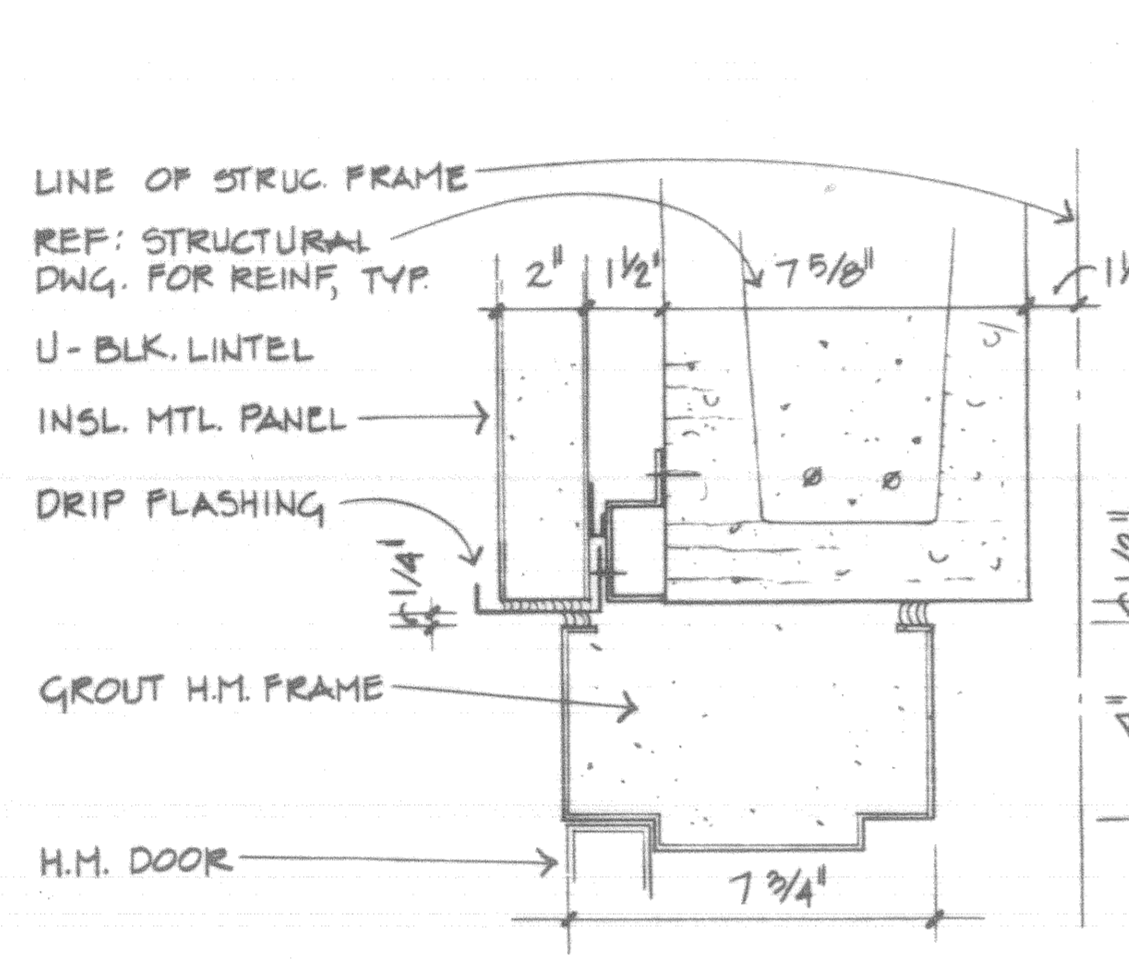 LINE OF STRUC. FRAME
REF: STRUCTURAL
DWG. FOR REINF, TYP.
2" 1 1/2" 7 5/8"
U-BLK. LINTEL
INSL. MTL. PANEL
DRIP FLASHING
1/4"
GROUT H.M. FRAME
4"
H.M. DOOR
7 3/4"